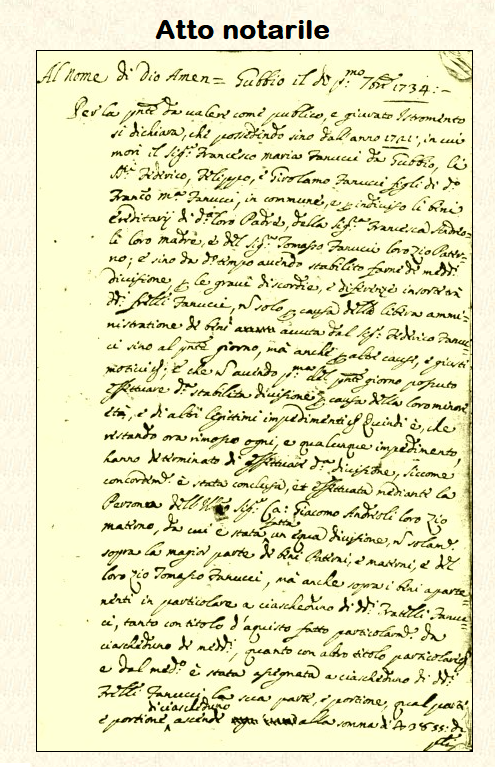 Atto notarile
Al Nome di Dio Amen = Gubbio il dì p:mo 7bre 1734: –
Per la pnte da valere come publico, e giurato Istromento
si dichiara, che possedendo sino dall'anno 1721, in cui
morì il Sig.r Francesco Maria Fanucci da Gubbio, li
SS.ri Federico, Filippo, e Girolamo Fanucci figli di d.o
Franc.o M.a Fanucci, in commune, e p indiviso li beni
ereditarij di d.o loro Padre, della Sig.ra Francesca Andreo-
li loro madre, e del Sig.r Tomasso Fanucci loro zio Pater-
no; e sino da d.o tempo avendo stabilito farne de med.mi
divisione, p le gravi discordie, e diferenze insorte trà
dd.i frelli Fanucci, n solo p causa della libera ammi-
nistratione de beni avuta dal Sig.r Federico Fanuc-
ci sino al pnte giorno, mà anche p altre cause, e giusti
motivi; e che n avendo p.ma del pnte giorno possuto
effettuare d.a stabilita divisione p causa della loro minore
età, e di altri legittimi impedimenti Quindi è, che
restando ora rimosso ogni, e qualunque impedimento,
hanno determinato di effettuare d.a divisione, siccome
concordem.te è stata conclusa, et effettuata mediante la
Persona dell' Sig.r Giacomo Andreoli loro zio
materno, da cui è stata fatta un equa divisione, n solam.te
sopra la magior parte de beni Paterni, e materni, e del
loro zio Tomasso Fanucci, mà anche sopra i beni aparte-
nenti in particolare a ciascheduno di dd.i Fratelli Fanuc-
ci, tanto con titolo d'aquisto fatto particolarm.te da
ciascheduno de med.mi, quanto con altro titolo particolare
e dal med.o è stata assegnata a ciascheduno di dd.i
Frelli Fanucci la sua parte, e portione, qual parte
e portione di ciascheduno ascende alla somma di 3855: di